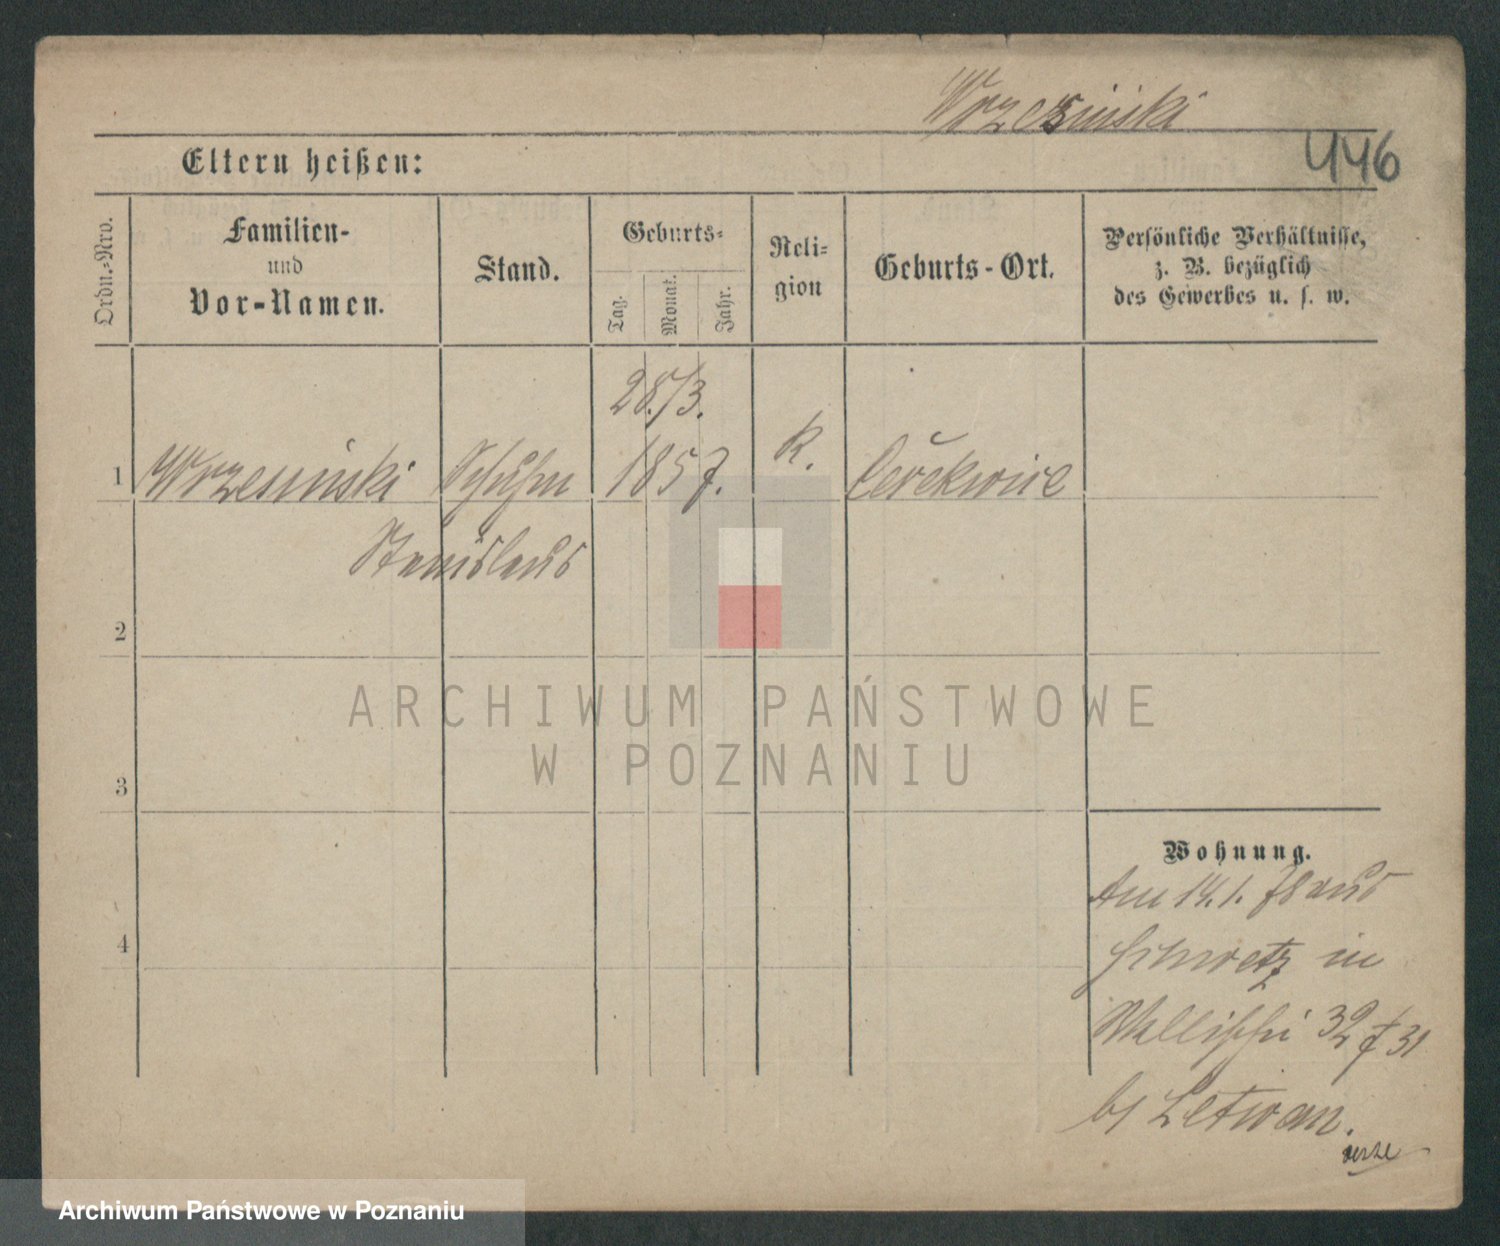 Wrzesinski
446
Eltern heißen:
Ordn.-Nro.
Familien-
und
Vor-Namen.
Stand.
Geburts-
Tag.
Monat.
Jahr.
Reli-
gion
Geburts-Ort.
Persönliche Verhältnisse,
z. B. bezüglich
des Gewerbes u. s. w.
28./3.
1 Wrzesinski 1857. k. Cerekwice
Stanislaus
2
3
4
Wohnung.
Am 14.1. 78 aus
Schwetz in
Wallischei 32 / 31
b/ Letwan.
ARCHIWUM PAŃSTWOWE
W POZNANIU
Archiwum Państwowe w Poznaniu